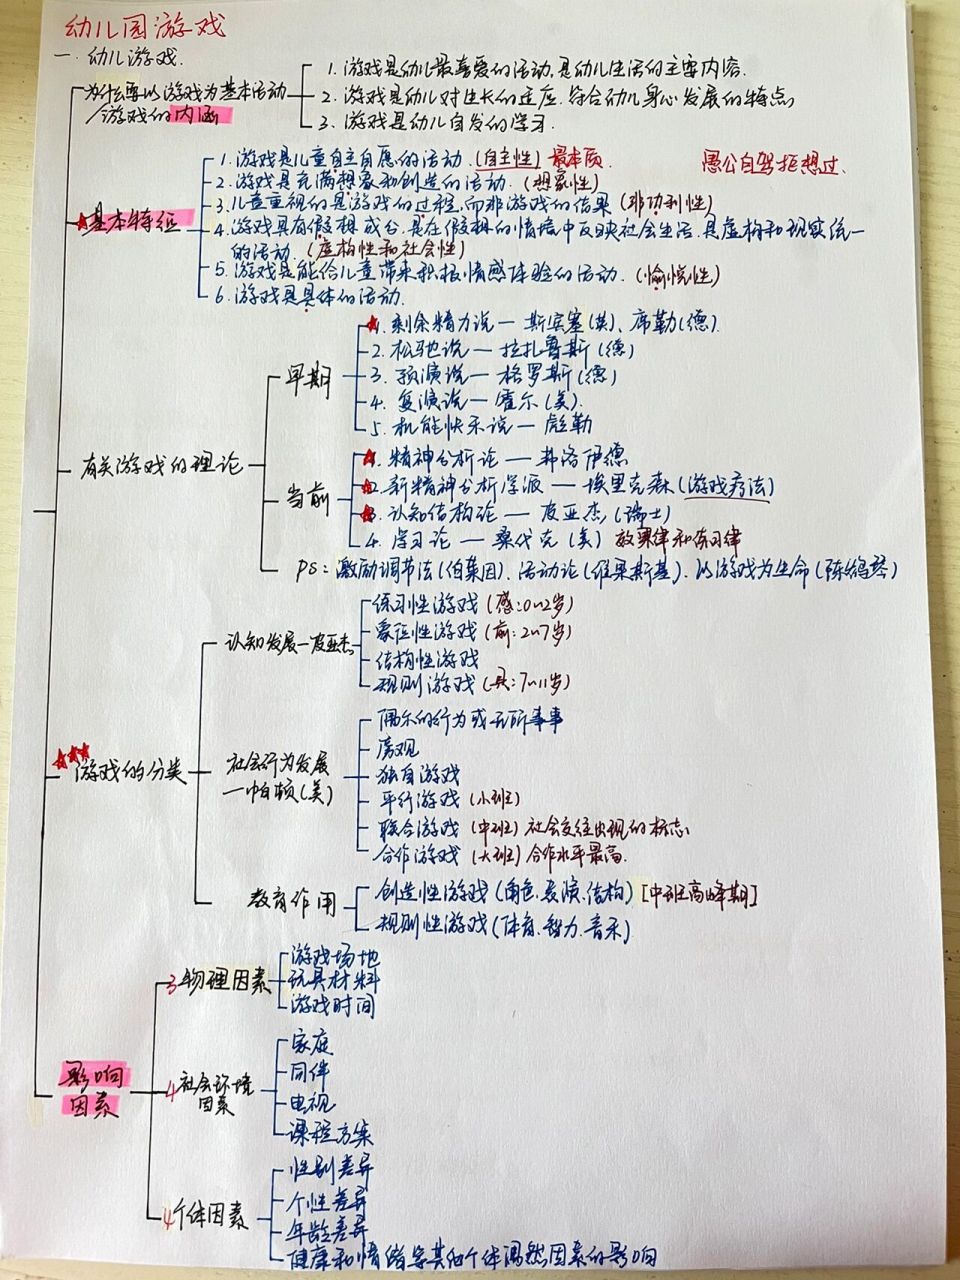 幼儿园游戏
一. 幼儿游戏.
为什么要以游戏为基本活动
/游戏的内涵
1. 游戏是幼儿最喜爱的活动,是幼儿生活的主要内容.
2. 游戏是幼儿对生长的适应.符合幼儿身心发展的特点.
3. 游戏是幼儿自发的学习.
基本特征
愚公自驾拒想过.
1. 游戏是儿童自主自愿的活动. (自主性) 最本质.
2. 游戏是充满想象和创造的活动. (想象性)
3. 儿童重视的是游戏的过程,而非游戏的结果 (非功利性)
4. 游戏具有假想成分,是在假想的情境中反映社会生活.是虚构和现实统一
的活动. (虚构性和社会性)
5. 游戏是能给儿童带来积极情感体验的活动. (愉悦性)
6. 游戏是具体的活动.
有关游戏的理论
早期
1. 剩余精力说—斯宾塞(英)、席勒(德).
2. 松弛说—拉扎鲁斯(德)
3. 预演说—格罗斯(德)
4. 复演说—霍尔(美).
5. 机能快乐说—彪勒
当前
1. 精神分析论—弗洛伊德
2. 新精神分析学派—埃里克森(游戏疗法)
3. 认知结构论—皮亚杰(瑞士)
4. 学习论—桑代克(美) 效果律和练习律
ps: 激励调节法(伯莱因)、活动论(维果斯基)、以游戏为生命(陈鹤琴)
游戏的分类
认知发展—皮亚杰
练习性游戏 (感:0~2岁)
象征性游戏 (前:2~7岁)
结构性游戏
规则游戏 (具:7~11岁)
社会行为发展
—帕顿(美)
偶尔的行为或无所事事
旁观
独自游戏
平行游戏 (小班)
联合游戏 (中班) 社会交往出现的标志.
合作游戏 (大班) 合作水平最高.
教育作用
创造性游戏(角色.表演.结构) [中班高峰期]
规则性游戏(体育.智力.音乐)
影响
因素
3物理因素
游戏场地
玩具材料
游戏时间
4社会环境
因素
家庭
同伴
电视
课程方案
4个体因素
性别差异
个性差异
年龄差异
健康和情绪等其他个体偶然因素的影响